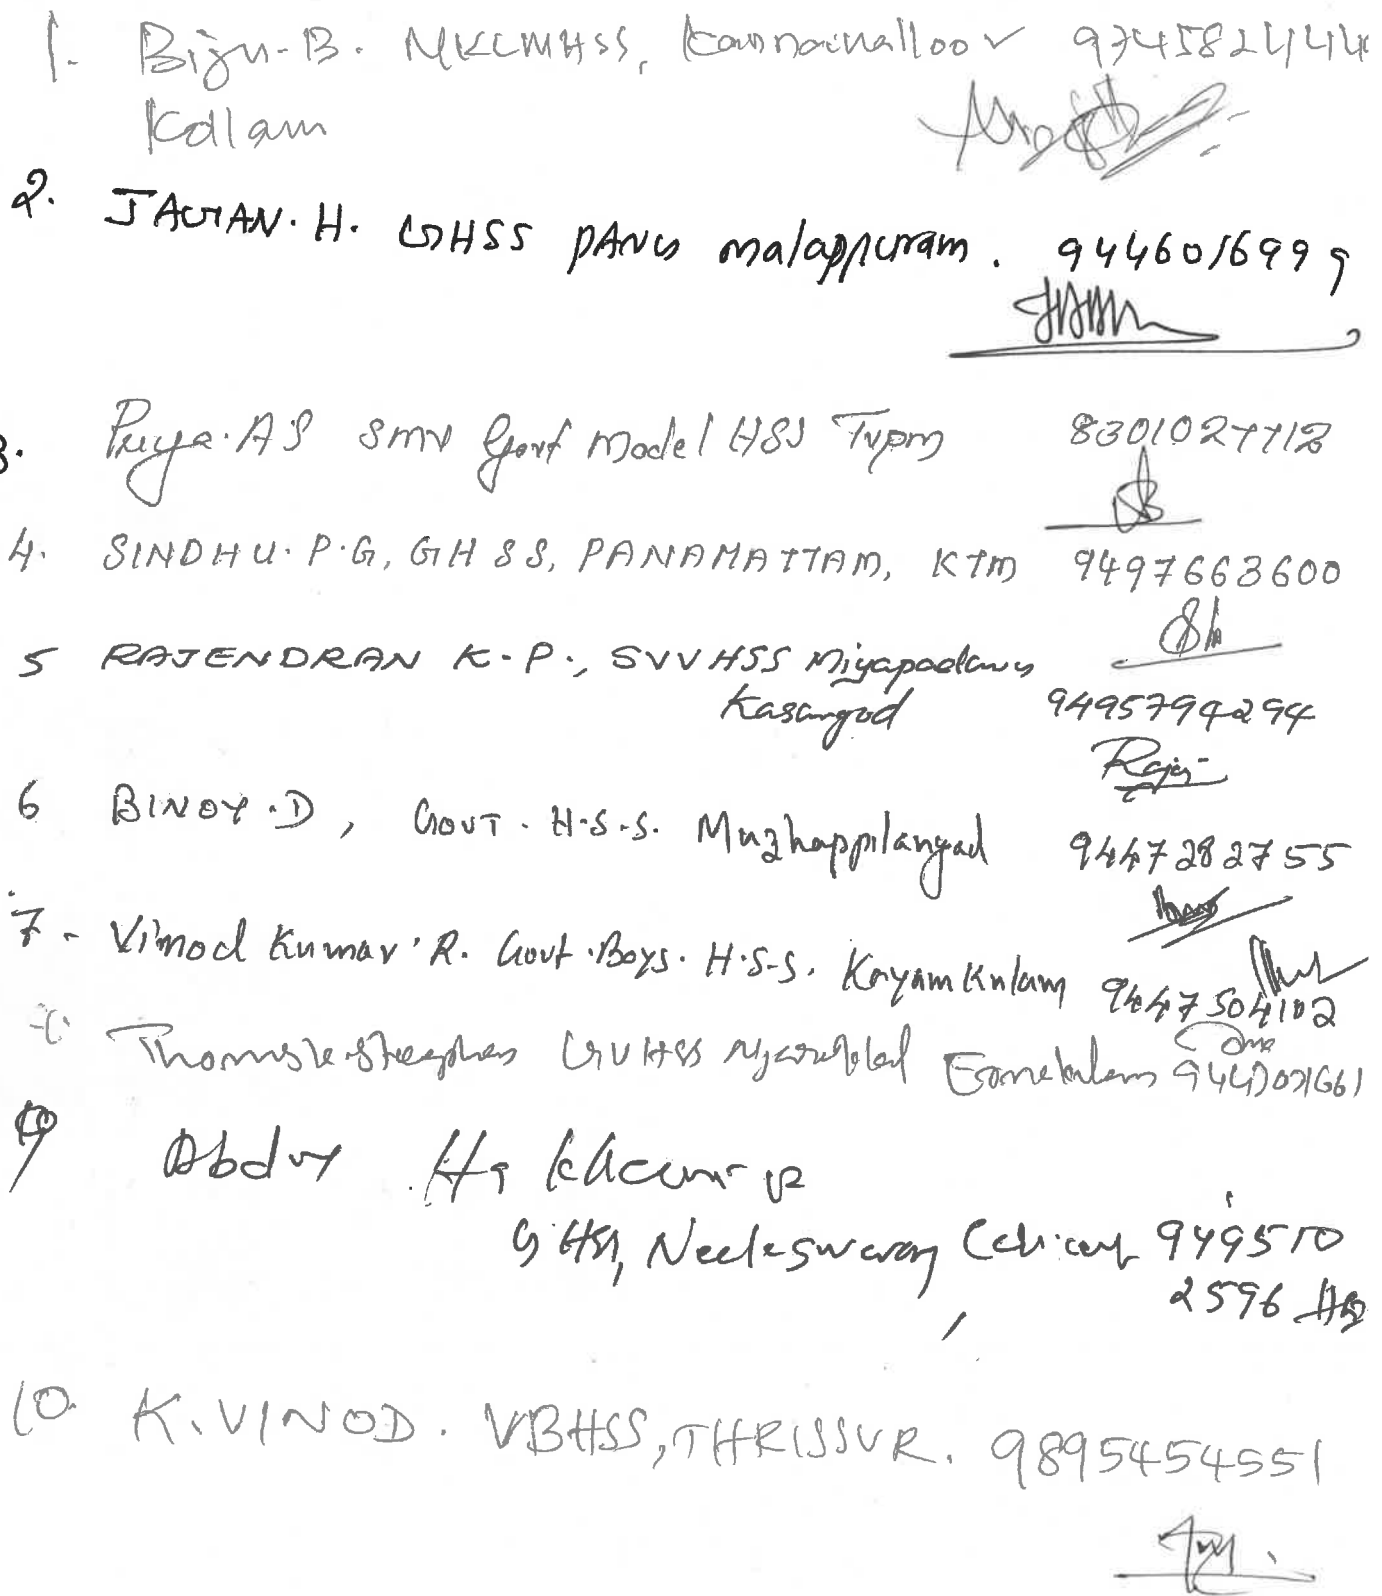 1. Biju-B. MKLMHSS, Kannanalloor 9745824444
Kollam
2. JAGAN. H. GHSS pANG malappuram. 9446016999
3. Priya. A S SMV Govt Model HSS Tvpm 8301027712
4. SINDHU. P.G, GHSS, PANAMATTAM, KTM 9497663600
5 RAJENDRAN K.P., SVVHSS Miyapadavu
Kasargod 9495794294
Raje
6 BINOY.D, GOVT. H.S.S. Muzhappilangad 9447282755
7- Vinod Kumar. R. Govt. Boys. H.S.S. Kayamkulam 9447504102
Thomas Steephen GVHSS Ernakulam
9 Abdul
GHSS, Neeleswaram Calicut 949510
2596
10. K. VINOD. VBHSS, THRISSUR. 9895454551